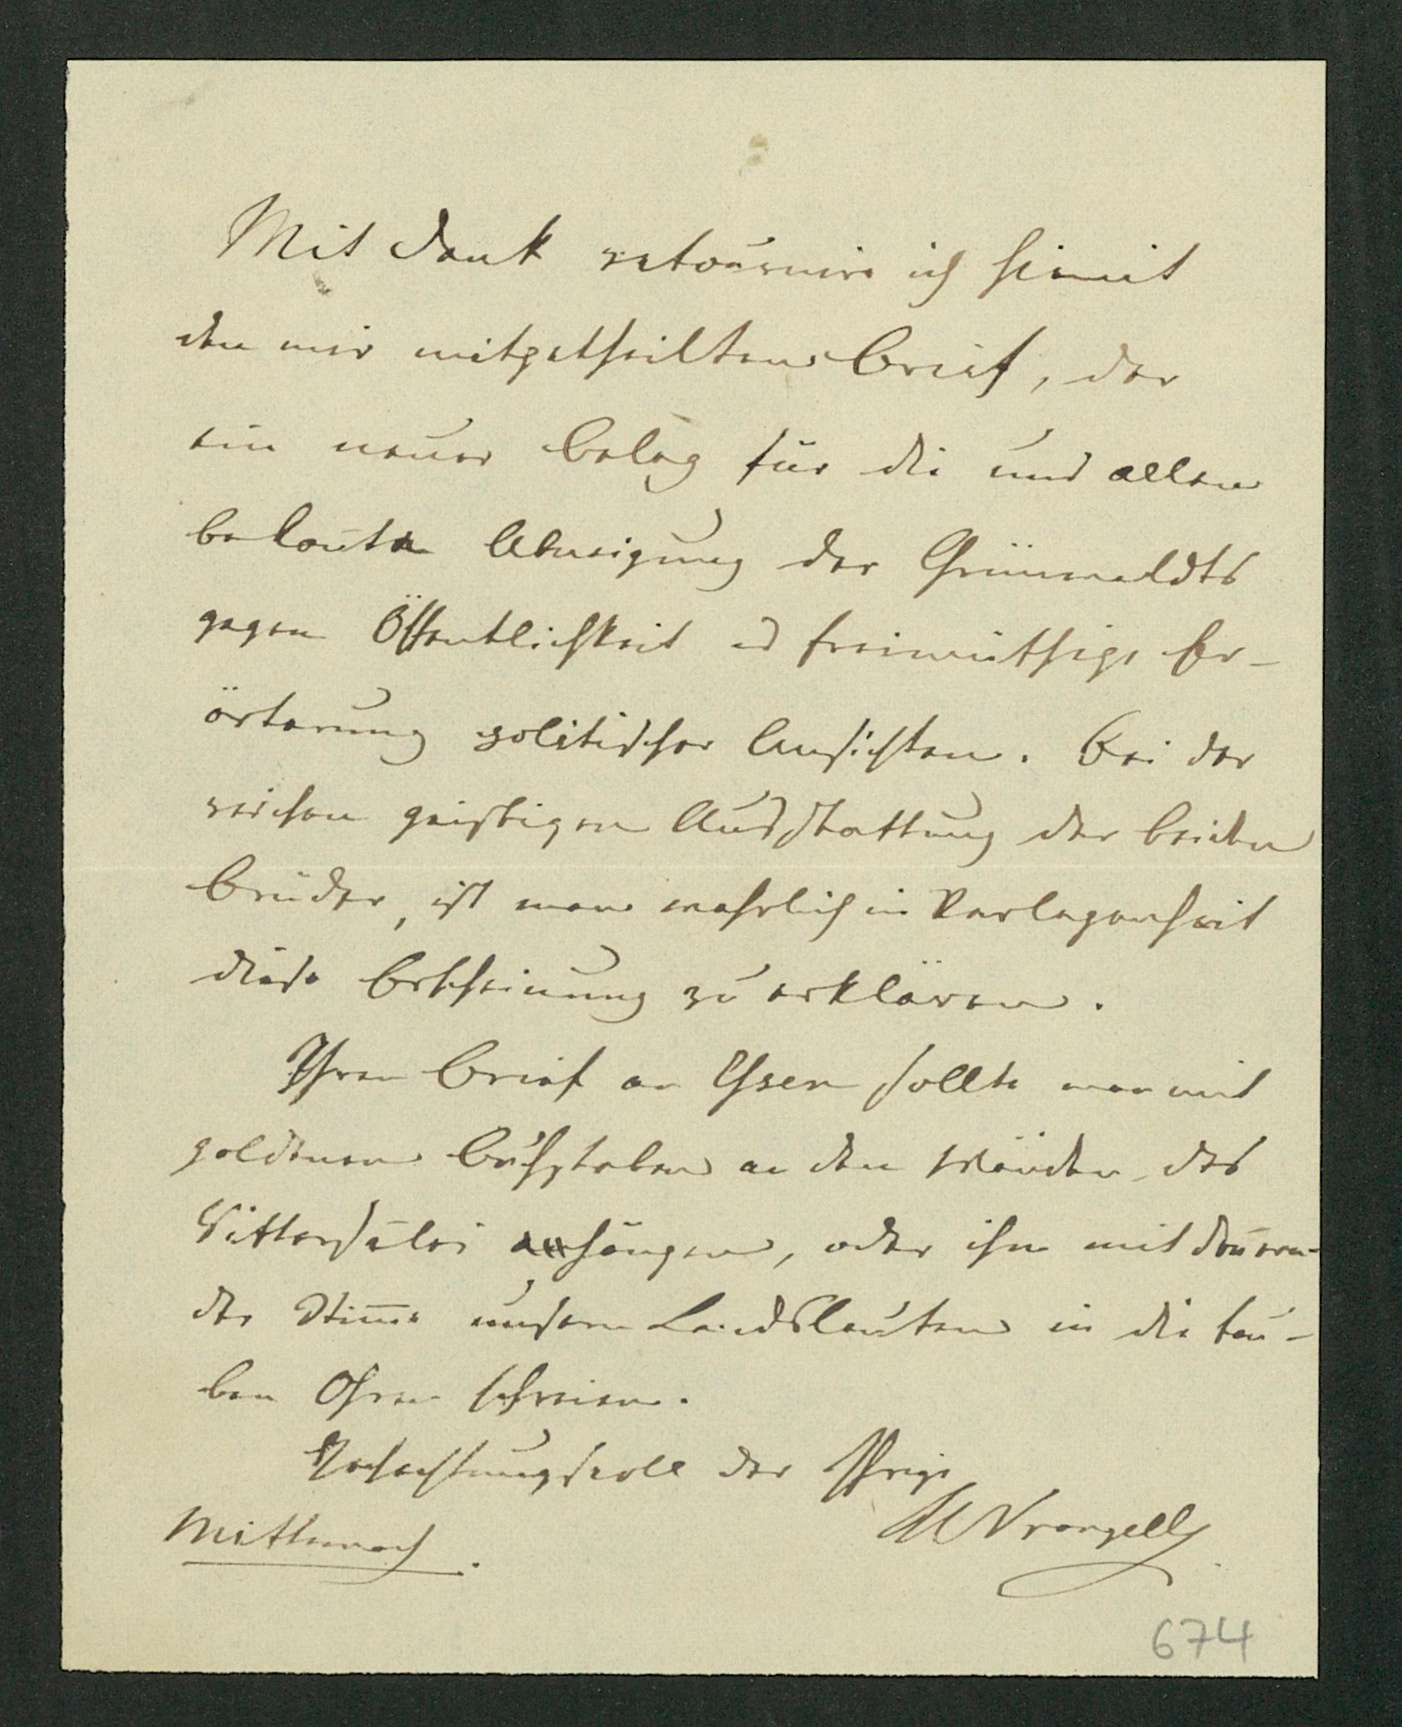 Mit Dank retournire ich hiemit
den mir mitgetheilten Brief, der
ein neuer Beleg für die uns allen
bekannte Abneigung der Grünewaldts
gegen Öffentlichkeit u freimüthige Er-
örterung politischer Ansichten. Bei der
reichen geistigen Ausstattung der beiden
Brüder, ist man wahrlich in Verlegenheit
diese Erscheinung zu erklären.
Ihren Brief an sollte man mit
goldenen Buchstaben an den Wänden des
Rittersaales anhängen, oder ihn mit
der Stimme unsern Landsleuten in die tau-
ben Ohren schreien.
Hochachtungsvoll der Ihrige
Wrangell
Mittwoch.
674